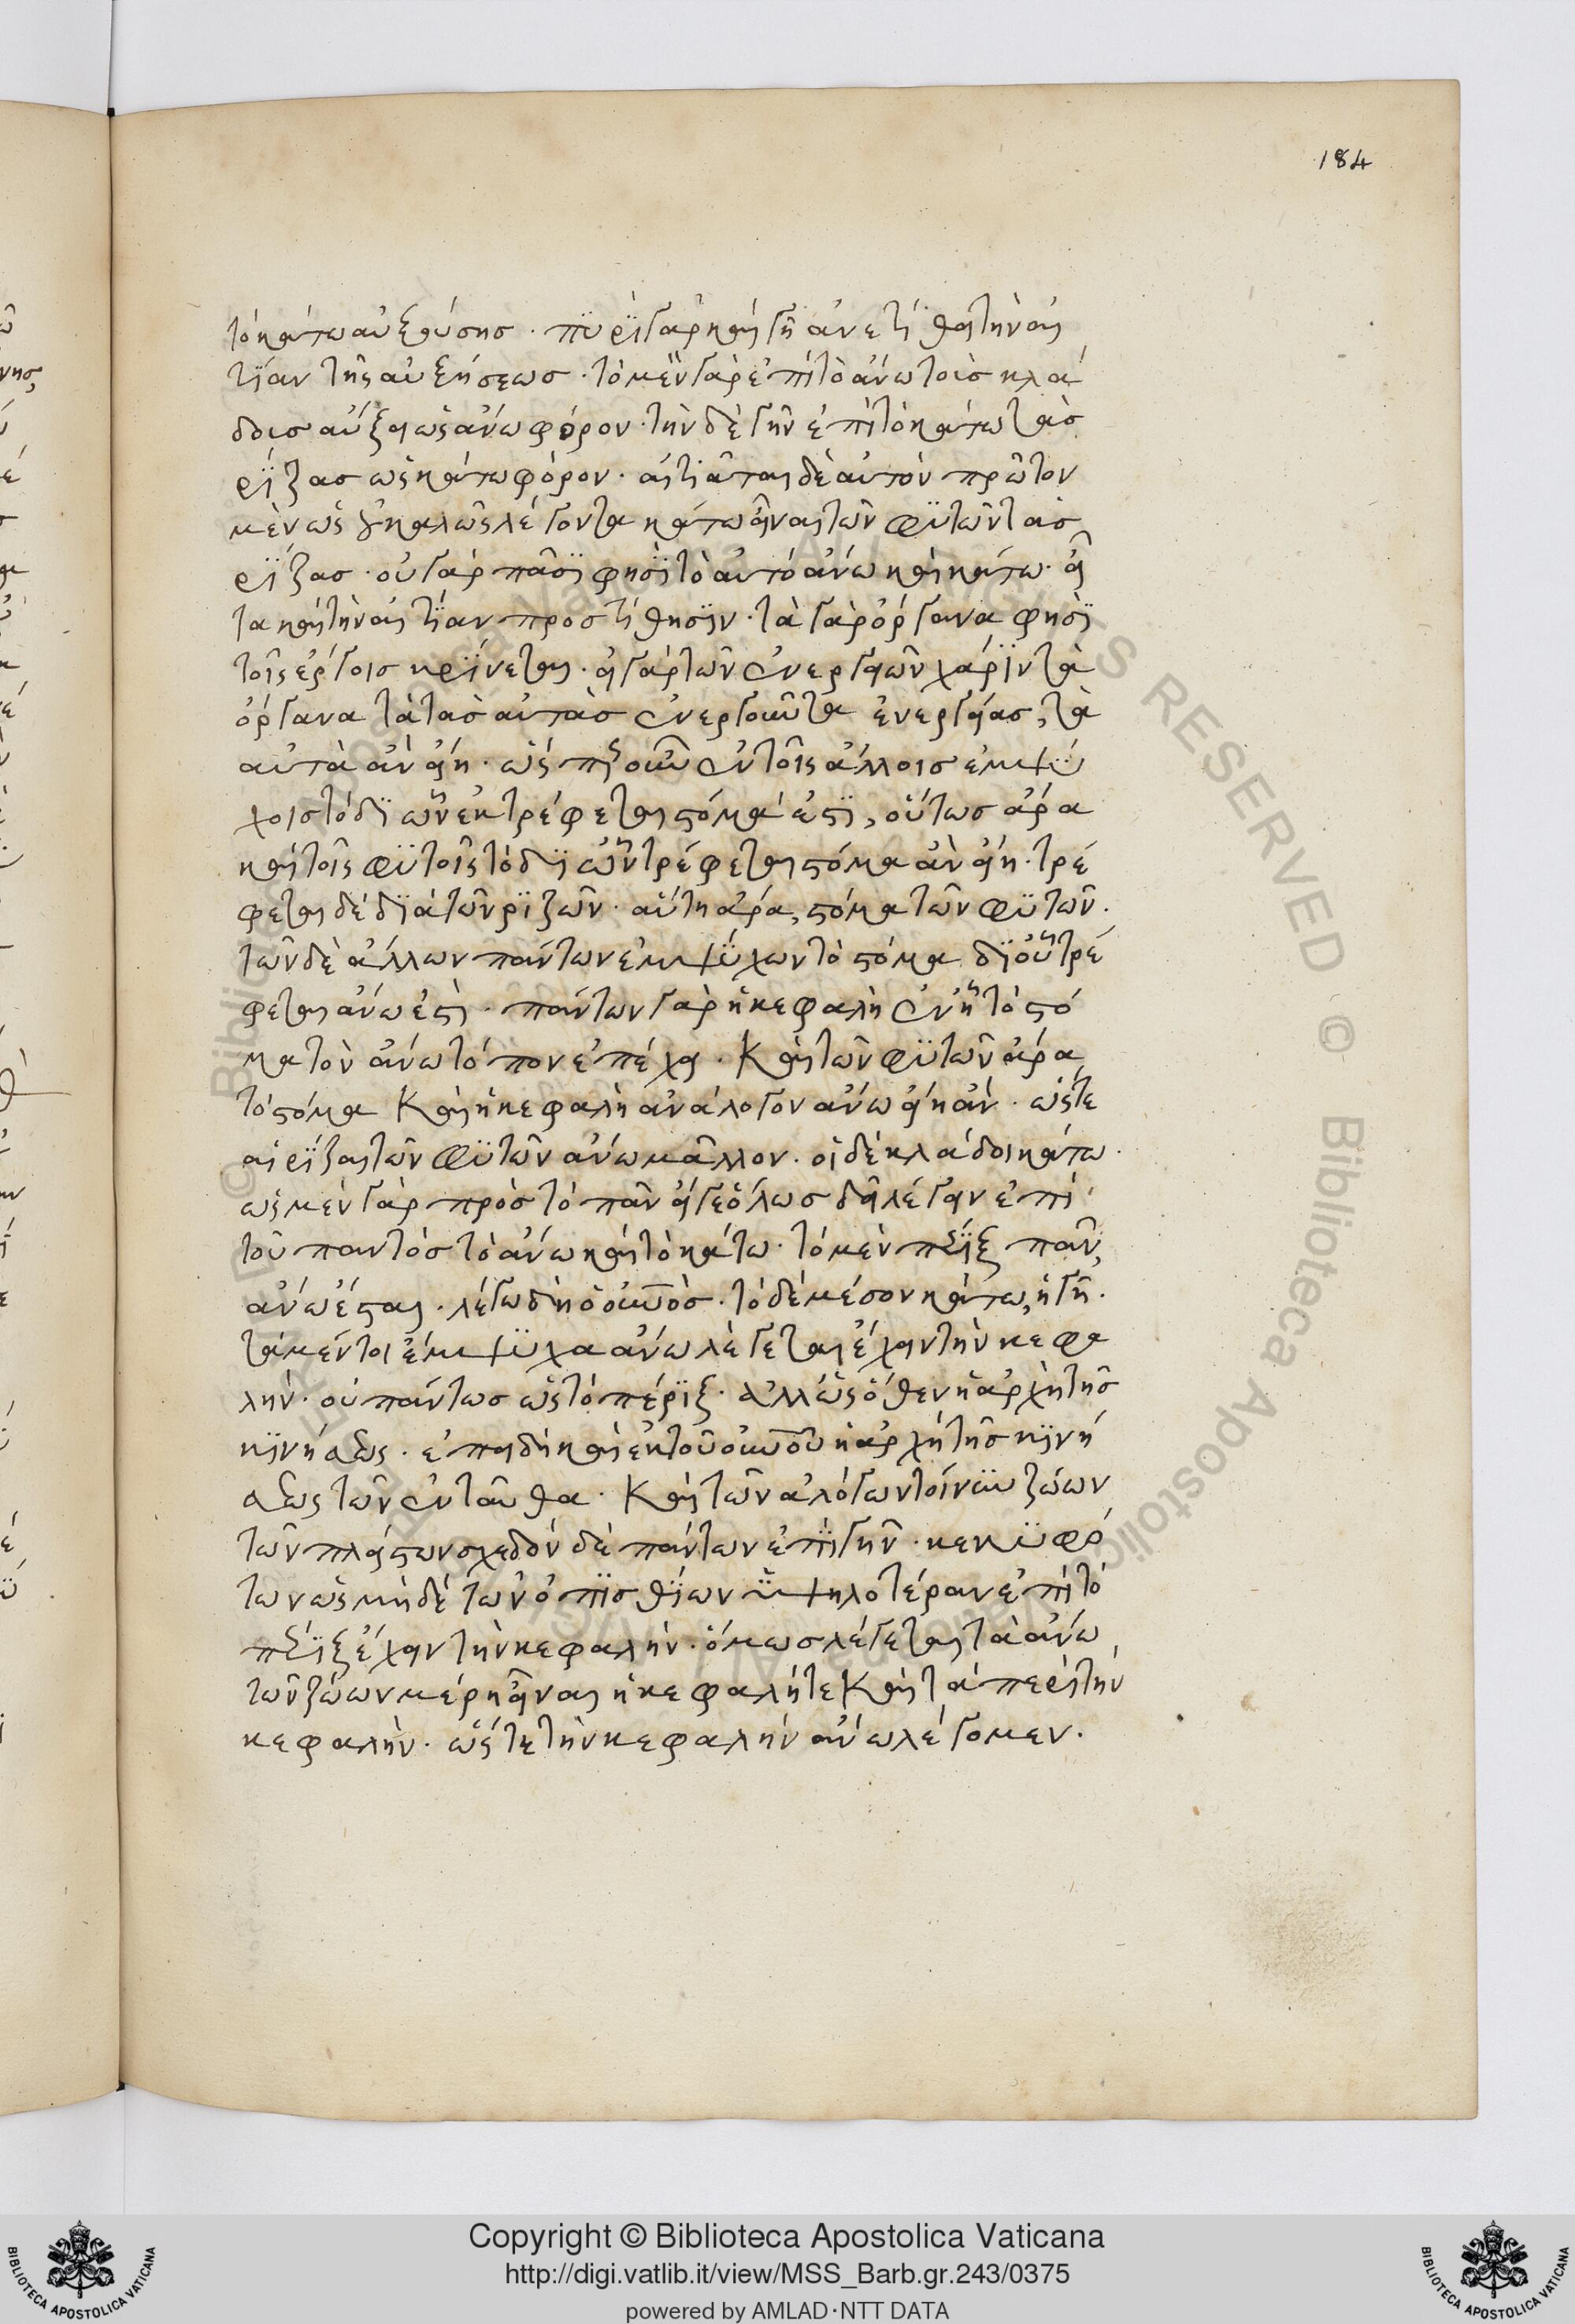 184
τὸ κάτω αὐξούσης · πϋρῒ γὰρ καὶ γῆ ἀνετίθει τὴν αἰ
τΐαν τῆς αὐξήσεως · τὸ μὲν γὰρ ἐπὶ τὸ ἄνω τοὺς κλά
δους αὔξει ὡς ἀνώφορον · τὴν δὲ γῆν ἐπὶ τὸ κάτω τὰς
ρΐζας ὡς κατώφορον · αἰτιᾶται δὲ αὐτὸν πρῶτον
μὲν ὡς οὐ καλῶς λέγοντα κάτω εἶναι τῶν φϋτῶν τὰς
ρΐζας · οὐ γὰρ πᾶσϊ φησῒ τὸ αὐτὸ ἄνω καὶ κάτω · εἶ
τα καὶ τὴν αἰτΐαν προστίθησϊν · τὰ γὰρ ὄργανα φησῒ
τοῖς ἔργοις κρΐνεται · εἰ γὰρ τῶν ἐνεργειῶν χάρϊν τὰ
ὄργανα τὰ τὰς αὐτὰς ἐνεργοῦντα ἐνεργείας, τὰ
αὐτὰ ἂν εἴη · ὥσπερ οὖν ἐν τοῖς ἄλλοις ἐμψΰ
χοις τὸ δϊ ὧν ἐκτρέφεται στόμα ἐστϊ, οὕτως ἄρα
καὶ τοῖς φϋτοῖς τὸ δϊ ὧν τρέφεται στόμα ἂν εἴη · τρέ
φεται δὲ δϊὰ τῶν ρϊζῶν · αὕτη ἄρα, στόμα τῶν φϋτῶν ·
τῶν δὲ ἄλλων πάντων ἐμψΰχων τὸ στόμα δϊ οὗ τρέ
φεται ἄνω ἐστὶ · πάντων γὰρ ἡ κεφαλὴ ἐν ᾗ τὸ στό
μα τὸν ἄνω τόπον ἐπέχει · Καὶ τῶν φϋτῶν ἄρα
τὸ στόμα Καὶ ἡ κεφαλὴ ἀνάλογον ἄνω εἴη ἂν · ὥστε
αἱ ρΐζαι τῶν φϋτῶν ἄνω μᾶλλον · οἱ δὲ κλάδοι κάτω ·
ὡς μὲν γὰρ πρὸς τὸ πᾶν εἴγε ὅλως δεῖ λέγειν ἐπὶ
τοῦ παντὸς τὸ ἄνω καὶ τὸ κάτω · τὸ μὲν πέρϊξ πᾶν,
ἄνω ἔσται · λέγω δὴ ὁ οὐνὸς · τὸ δὲ μέσον κάτω, ἡ γῆ ·
τὰ μέντοι ἔμψϋχα ἄνω λέγεται ἔχειν τὴν κεφα
λὴν · οὐ πάντως ὡς τὸ πέρϊξ · ἀλλ' ὡς ὅθεν ἡ ἀρχὴ τῆς
κϊνήσεως · ἐπειδὴ καὶ ἐκ τοῦ οὐνοῦ ἡ ἀρχὴ τῆς κϊνή
σεως τῶν ἐνταῦθα · Καὶ τῶν ἀλόγων τοίνϋν ζώων
τῶν πλείστων σχεδὸν δὲ πάντων ἐπῒ γῆν · κεκϋφό
των ὡς μὴ δὲ τῶν ὀπϊσθΐων ὑψηλοτέραν ἐπὶ τὸ
πέρϊξ ἔχειν τὴν κεφαλήν · ὅμως λέγεται τὰ ἄνω
τῶν ζώων μέρη εἶναι ἡ κεφαλή τε Καὶ τὰ περὶ τὴν
κεφαλὴν · ὥστε τὴν κεφαλὴν ἄνω λέγομεν ·
Copyright © Biblioteca Apostolica Vaticana
http://digi.vatlib.it/view/MSS_Barb.gr.243/0375
powered by AMLAD·NTT DATA